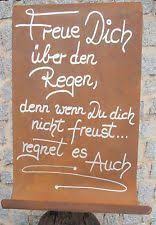 Freue Dich
über den
Regen,
denn wenn Du dich
nicht freust...
regnet es
Auch